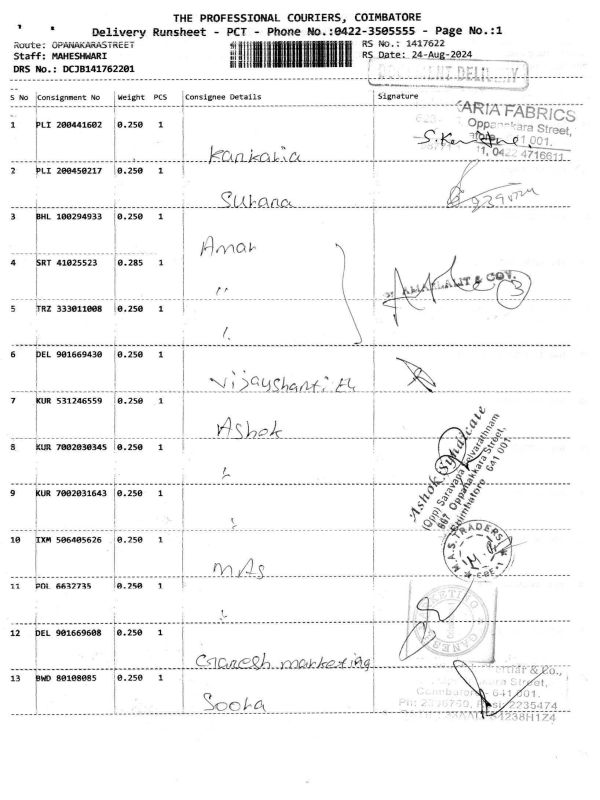 THE PROFESSIONAL COURIERS, COIMBATORE
Delivery Runsheet - PCT - Phone No.:0422-3505555 - Page No.:1
Route: OPANAKARASTREET RS No.: 1417622
Staff: MAHESHWARI RS Date: 24-Aug-2024
DRS No.: DCJB141762201
S No Consignment No Weight PCS Consignee Details Signature
ARIA FABRICS
1 PLI 200441602 0.250 1 Kankaria
Street,
1 001.
11, 0422 4716611
2 PLI 200450217 0.250 1 Surana
3 BHL 100294933 0.250 1 Amar
4 SRT 41025523 0.285 1 "
& COY.
3
5 TRZ 333011008 0.250 1
6 DEL 901669430 0.250 1 Vijayshanti
7 KUR 531246559 0.250 1 Ashok
Ashok Syndicate
867 Oppanakkara Street,
Coimbatore - 641 001
8 KUR 7002030345 0.250 1
9 KUR 7002031643 0.250 1
10 IXM 506405626 0.250 1 MAS
M.A.S. TRADERS
CBE-1
11 PDL 6632735 0.250 1
12 DEL 901669608 0.250 1 Ganesh marketing
13 BWD 80108085 0.250 1 Soora
& Co.,
Street,
641 001.
2235474